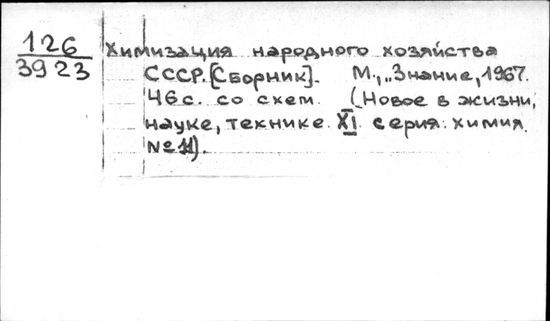 126
3923
Химизация народного хозяйства
СССР. [Сборник]. М., „Знание, 1967.
46с. со схем. (Новое в жизни,
науке, технике. XI серия: химия.
№ 11).